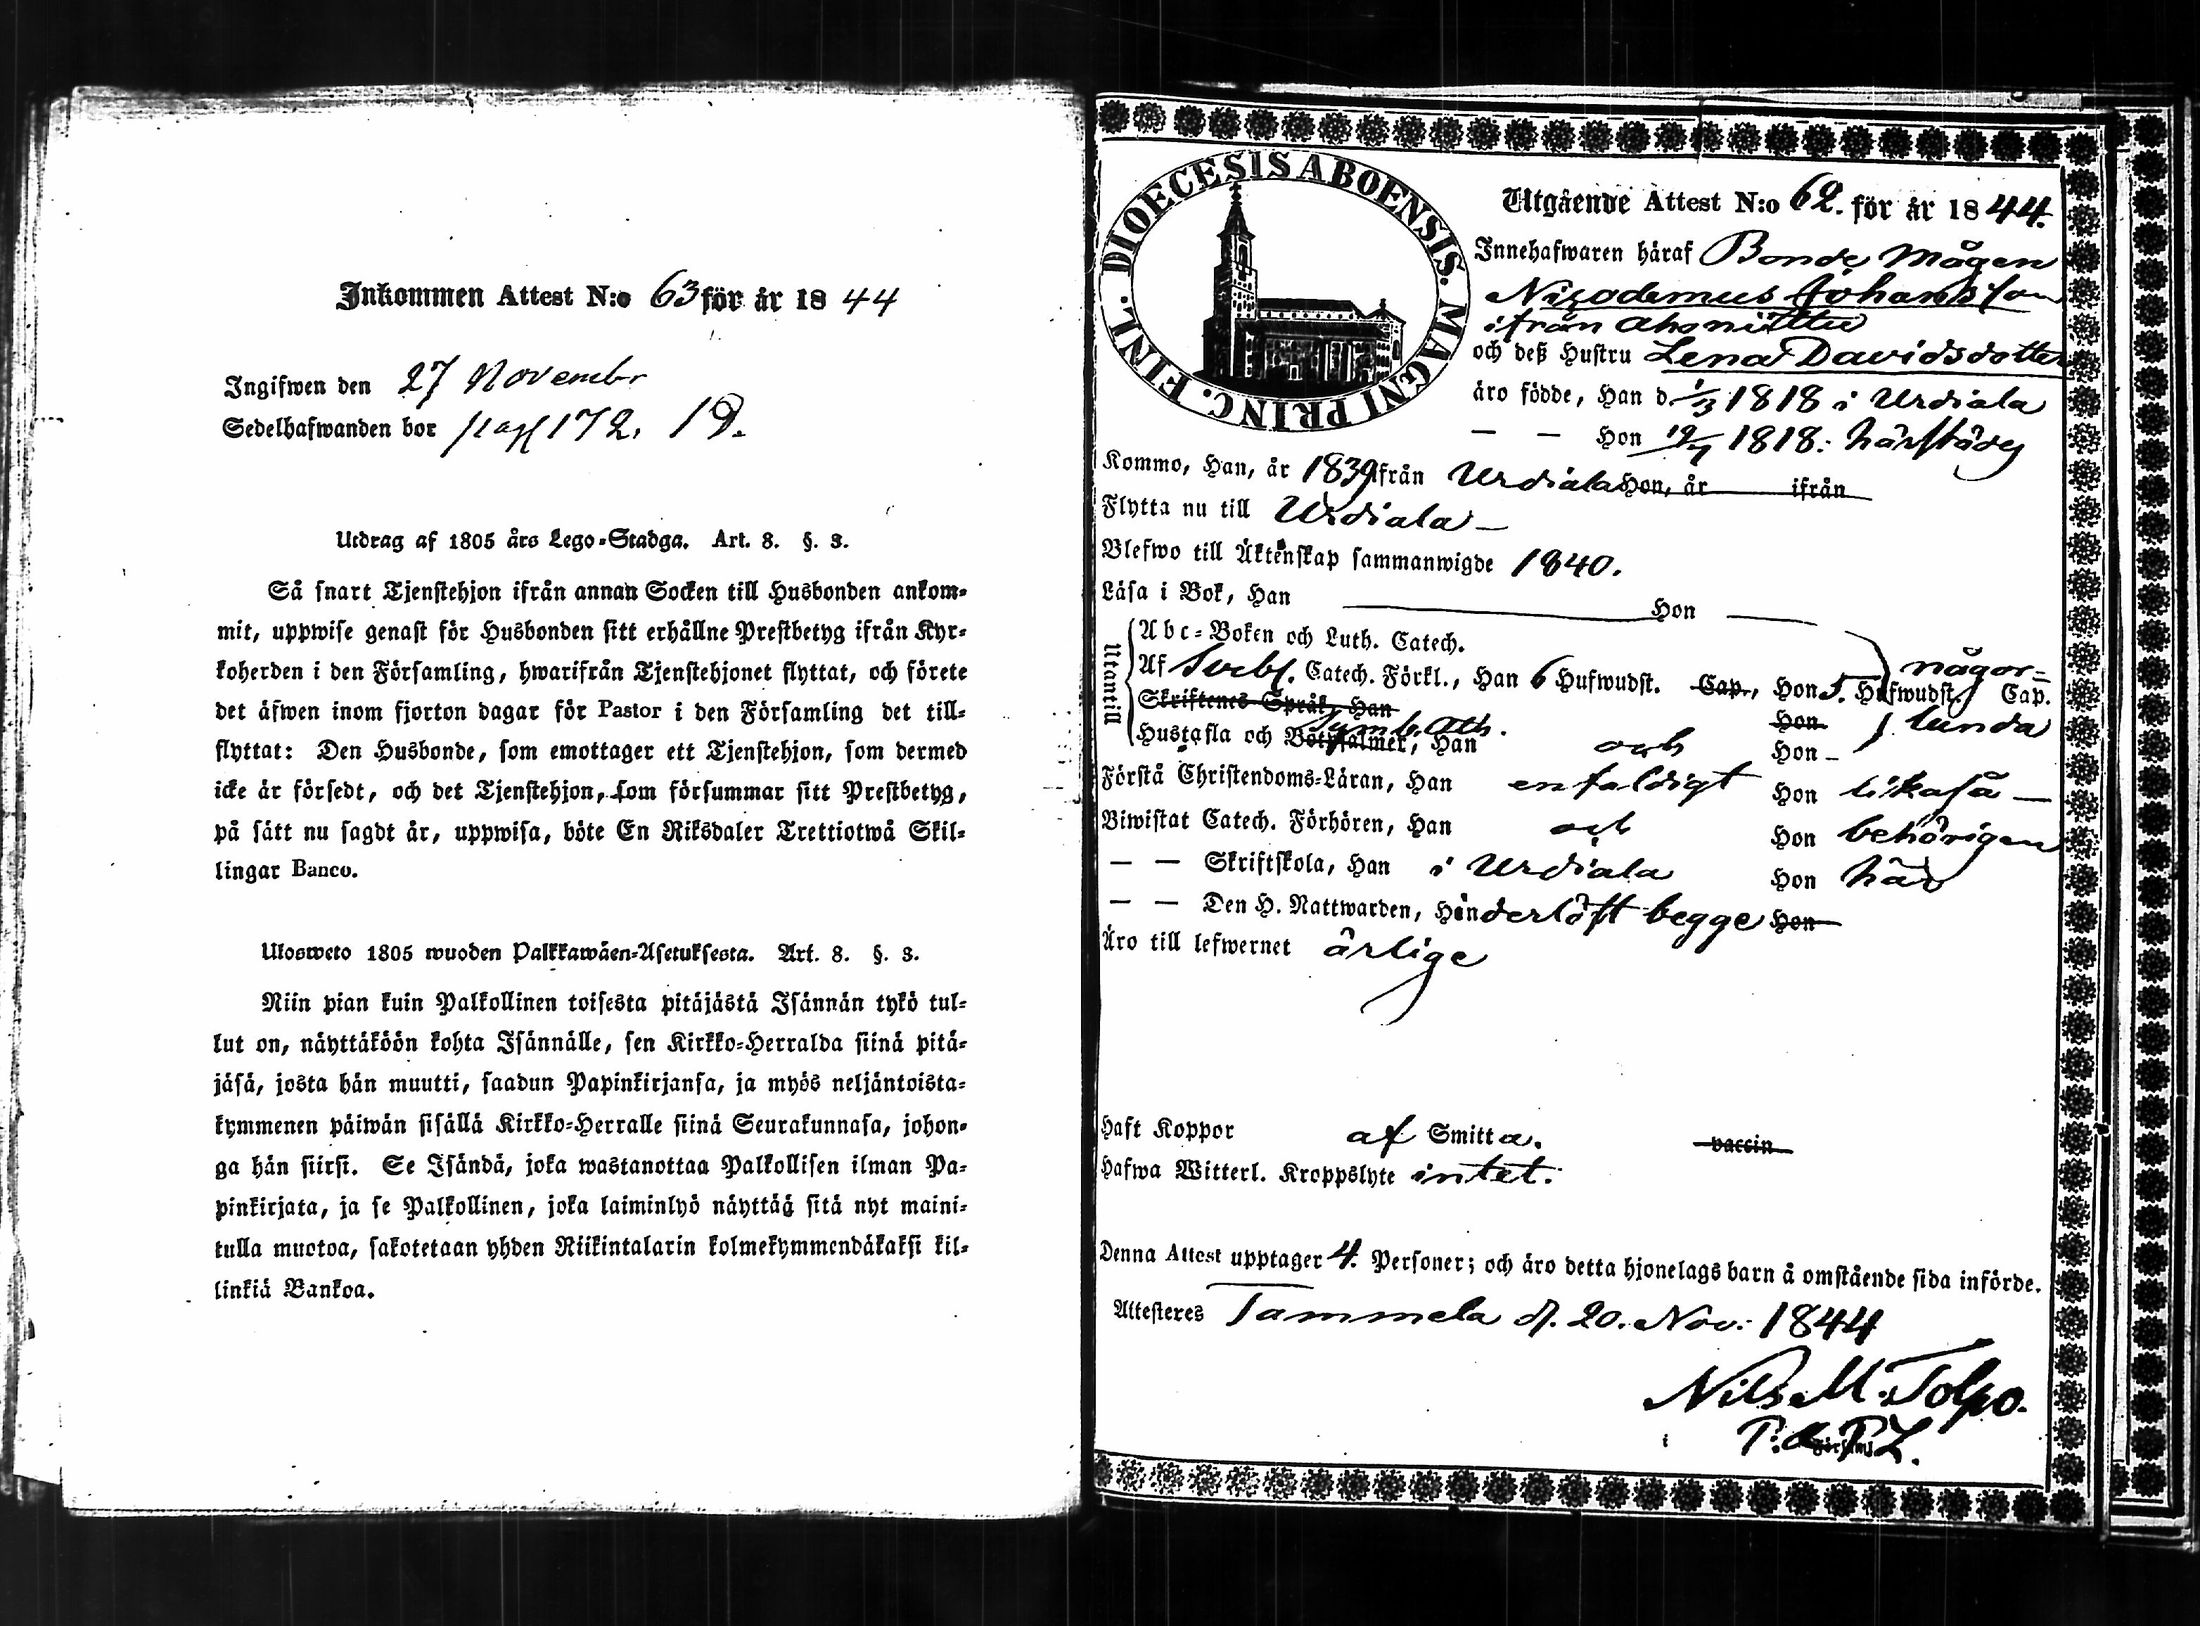 Inkommen Attest N:o 63 för år 1844
Ingifwen den 27 Novembr
Sedelhafwanden bor pag 172. 19.
Utdrag af 1805 års Lego-Stadga. Art. 8. §. 3.
Så snart Tjenstehjon ifrån annan Socken till Husbonden ankom-
mit, uppwise genast för Husbonden sitt erhållne Prestbetyg ifrån Kyr-
koherden i den Församling, hwarifrån Tjenstehjonet flyttat, och förete
det äfwen inom fjorton dagar för Pastor i den Församling det till-
flyttat: Den Husbonde, som emottager ett Tjenstehjon, som dermed
icke är försedt, och det Tjenstehjon, som försummar sitt Prestbetyg,
på sätt nu sagdt är, uppwisa, böte En Riksdaler Trettiotwå Skil-
lingar Banco.
Ulosweto 1805 wuoden Palkkawäen-Asetuksesta. Art. 8. §. 3.
Niin pian kuin Palkollinen toisesta pitäjästä Isännän tykö tul-
lut on, näyttäköön kohta Isännälle, sen Kirkko-Herralda siinä pitä-
jäsä, josta hän muutti, saadun Papinkirjansa, ja myös neljäntoista-
kymmenen päiwän sisällä Kirkko-Herralle siinä Seurakunnasa, johon-
ga hän siirsi. Se Isändä, joka wastanottaa Palkollisen ilman Pa-
pinkirjata, ja se Palkollinen, joka laiminlyö näyttää sitä nyt maini-
tulla muotoa, sakotetaan yhden Riikintalarin kolmekymmendäkaksi kil-
linkiä Bankoa.
FINL. DIOECESIS ABOENSIS. MAGNI PRINC.
Utgående Attest N:o 62. för år 1844.
Innehafwaren häraf Bonde Mågen
Nicodemus Johansson
ifrån
och deß Hustru Lena Davidsdotter
äro födde, Han d 1/3 1818 i Urdiala
— — Hon 1818. härstädes
Kommo, Han, år 1839 ifrån Urdiala Hon, år ifrån
Flytta nu till Urdiala –
Blefwo till Äktenskap sammanwigde 1840.
Läsa i Bok, Han Hon
Utantill
Abc-Boken och Luth. Catech.
Af Svebi. Catech. Förkl., Han 6 Hufwudst. Cap., Hon 5. Hufwudst. Cap. någor-
Skriftenes Språk, Han Hon lunda
Hustafla och Botpsalmer, Han Symb. Ath. och Hon –
Förstå Christendoms-Läran, Han enfaldigt Hon likaså –
Biwistat Catech. Förhören, Han och Hon behörigen
— — Skriftskola, Han i Urdiala Hon här
— — Den H. Nattwarden, Han begge Hon
Äro till lefwernet ärlige
Haft Koppor af Smitta. vaccin
Hafwa Witterl. Kroppslyte intet.
Denna Attest upptager 4. Personer; och äro detta hjonelags barn å omstående sida införde.
Attesteres Tammela d. 20. Nov. 1844
Nils M. Tolpo.
i